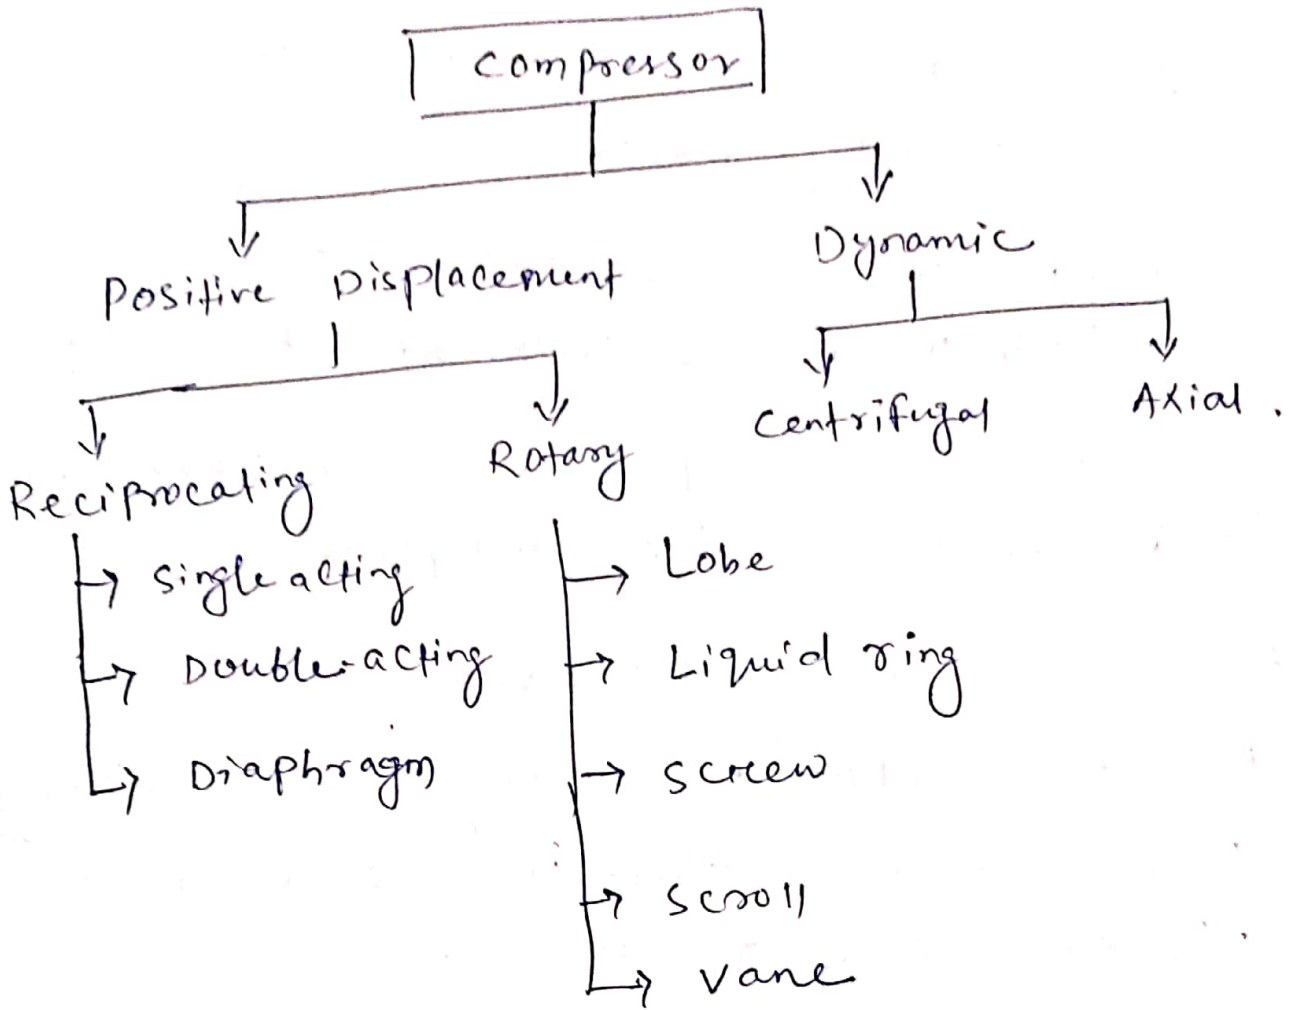 Compressor
Positive Displacement
Dynamic
Reciprocating
Rotary
Centrifugal
Axial.
Single acting
Double-acting
Diaphragm
Lobe
Liquid ring
Screw
Scroll
Vane